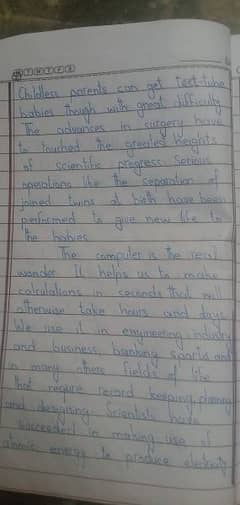 Childless parents can get test-tube
babies though with great difficulty
The advances in surgery have
to touched the greatest heights
of scientific progress Serious
operations like the separation of
joined twins at birth have been
performed to give new life to
the babies
The computer is the real
wonder It helps us to make
calculations in seconds that will
otherwise take hours and days
We use it in engineering industry
and business, banking sports and
in many others fields of life
that require record keeping, planning
and designing Scientists have
succeeded in making use of
atomic energy to produce electricity